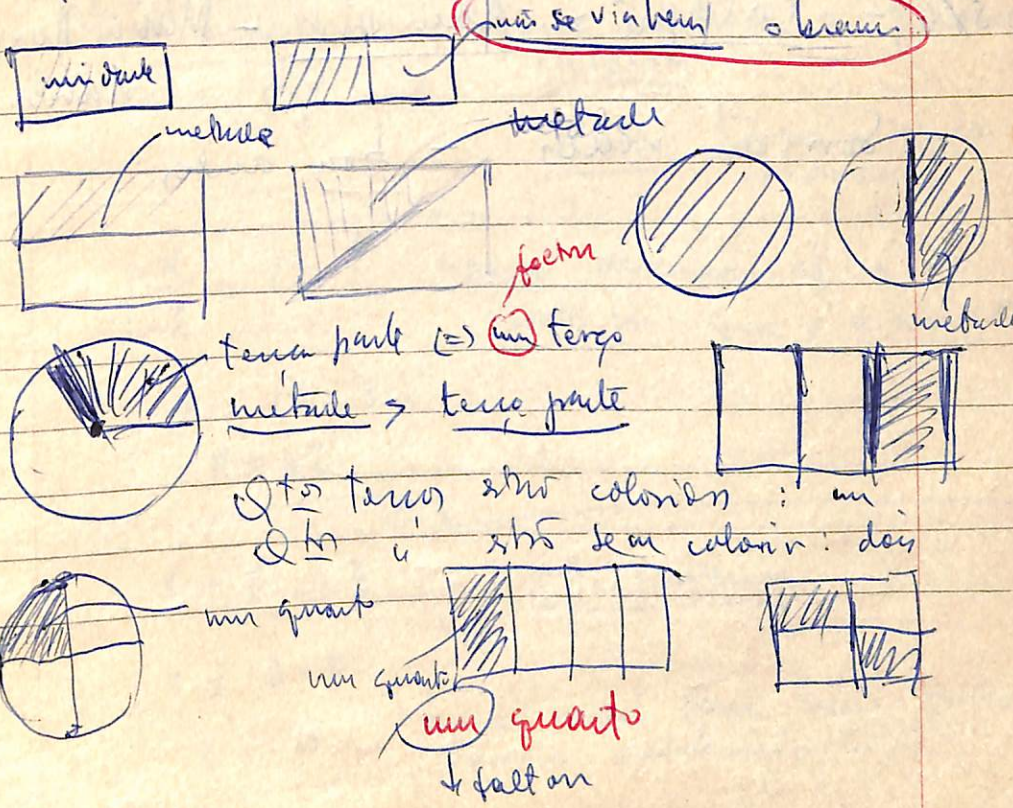 não se via bem o branco
unidade
metade
metade
metade
faltou
terça parte (=) um terço
metade > terça parte
Qtos terços estão coloridos : um
Qtos " estão sem colorir : dois
um quarto
um quarto
um quarto
faltou